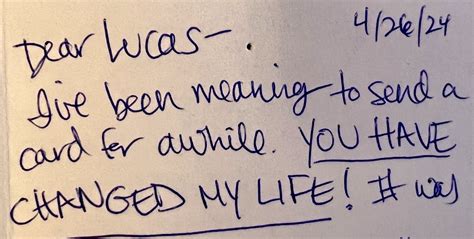 4/26/24
Dear Lucas—
I've been meaning to send a
card for awhile. YOU HAVE
CHANGED MY LIFE! It was